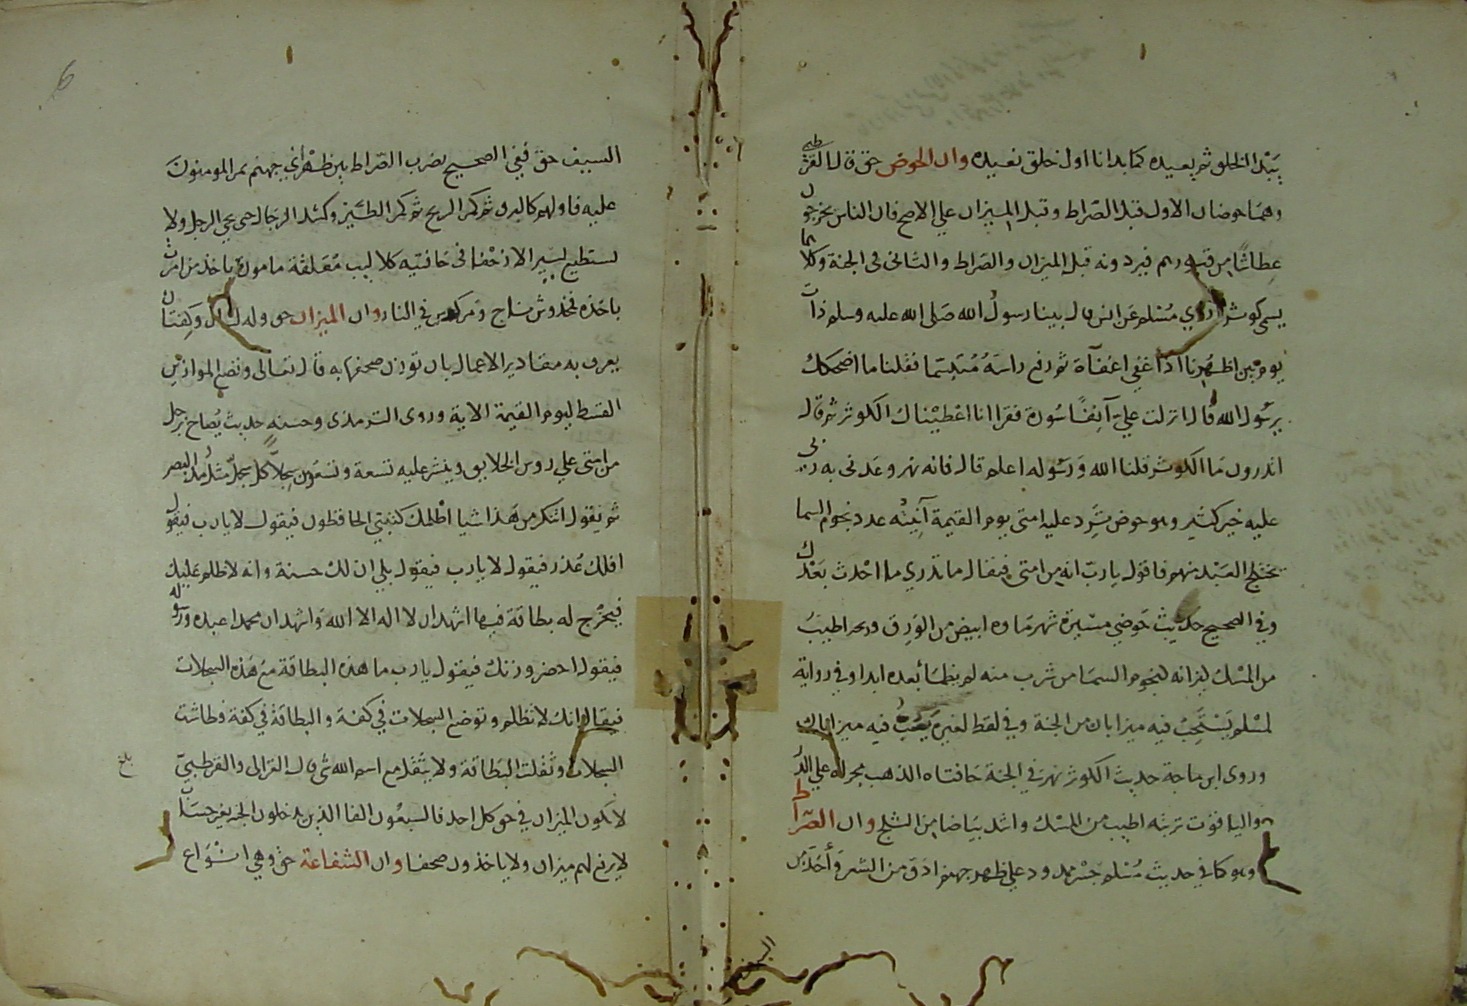 يبدا الخلق ثم يعيده كما بدانا اول خلق نعيده وان الحوض حق قال القرطبي
وهما حوضان الاول قبل الصراط وقبل الميزان علي الاصح فان الناس يخرجون
عطاشا من قبورهم فيردونه قبل الميزان والصراط والثاني في الجنة وكلاهما
يسمي كوثرا روي مسلم عن انس قال بينا رسول الله صلى الله عليه وسلم ذات
يوم بين اظهرنا اذا غفي اغفآة ثم رفع راسه مُتبسّما فقلنا ما اضحكك
يرسول الله قال انزلت عليّ آنفًا سورة فقرا انا اعطيناك الكوثر ثم قال
اتدرون ما الكوثر قلنا الله ورسوله اعلم قال فانه نهر وعدني به ربي
عليه خير كثير وهو حوض ترد عليه امتي يوم القيمة آنيته عدد نجوم السما
يختلج العبد منهم فاقول يارب انه من امتي فيقال ما تدري ما احدث بعدك
وفي الصحيح حديث حوضي مسيرة شهر ماوه ابيض من الورق وريحه اطيب
من المسك كيزانه كنجوم السما من شرب منه لم يظمأ بعده ابدا وفي رواية
لمسلم يشخب فيه ميزابان من الجنة وفي لفظ لغيره يغت فيه ميزابان
وروي ابن ماجة حديث الكوثر نهر في الجنة حافتاه الذهب مجراه علي الدر
والياقوت تربته اطيب من المسك واشد بياضا من الثلج وان الصراط
وهو كما في حديث مسلم جسر ممدود علي ظهر جهنم ادق من الشعر وأحدّ من
السيف
السيف حق ففي الصحيح يضرب الصراط بين ظهراني جهنم يمر المومنون
عليه فاولهم كالبرق ثم كمر الريح ثم كمر الطير وكشد الرجال حتى يجي الرجل ولا
يستطيع يسير الا زحفا في حافتيه كلاليب معلقة مامورة ياخذ من امرت
باخذه فمخدوش ناج ومكردس في النار وان الميزان حق وله لسان وكفتان
يعرف به مقادير الاعمال بان توزن صحفها به قال تعالى ونضع الموازين
القسط ليوم القيمة الاية وروي الترمذي وحسنه حديث يُصاح برجل
من امتي علي روس الخلايق وينشر عليه تسعة وتسعون سجلا كل سجل مثل مد البصر
ثم يقول اتنكر من هذا شيا اظلمك كتبتي الحافظون فيقول لا يارب فيقول
افلك عذر فيقول لا يارب فيقول بلي ان لك حسنة وانه لا ظلم عليك
فيخرج له بطاقة فيها اشهد ان لا اله الا الله واشهد ان محمدا عبده ورسوله
فيقول احضر وزنك فيقول يارب ما هذه البطاقة مع هذه السجلات
فيقال انك لا تظلم وتوضع السجلات في كفة والبطاقة في كفة فطاشت
السجلات وثقلت البطاقة ولا يثقل مع اسم الله شي قال الغزالي والقرطبي
بلغ
لا يكون الميزان في حق كل احد فالسبعون الفا الذين يدخلون الجنة بغير حساب
لا يرفع لهم ميزان ولا ياخذون صحفا وان الشفاعة حق وهي انواع
6